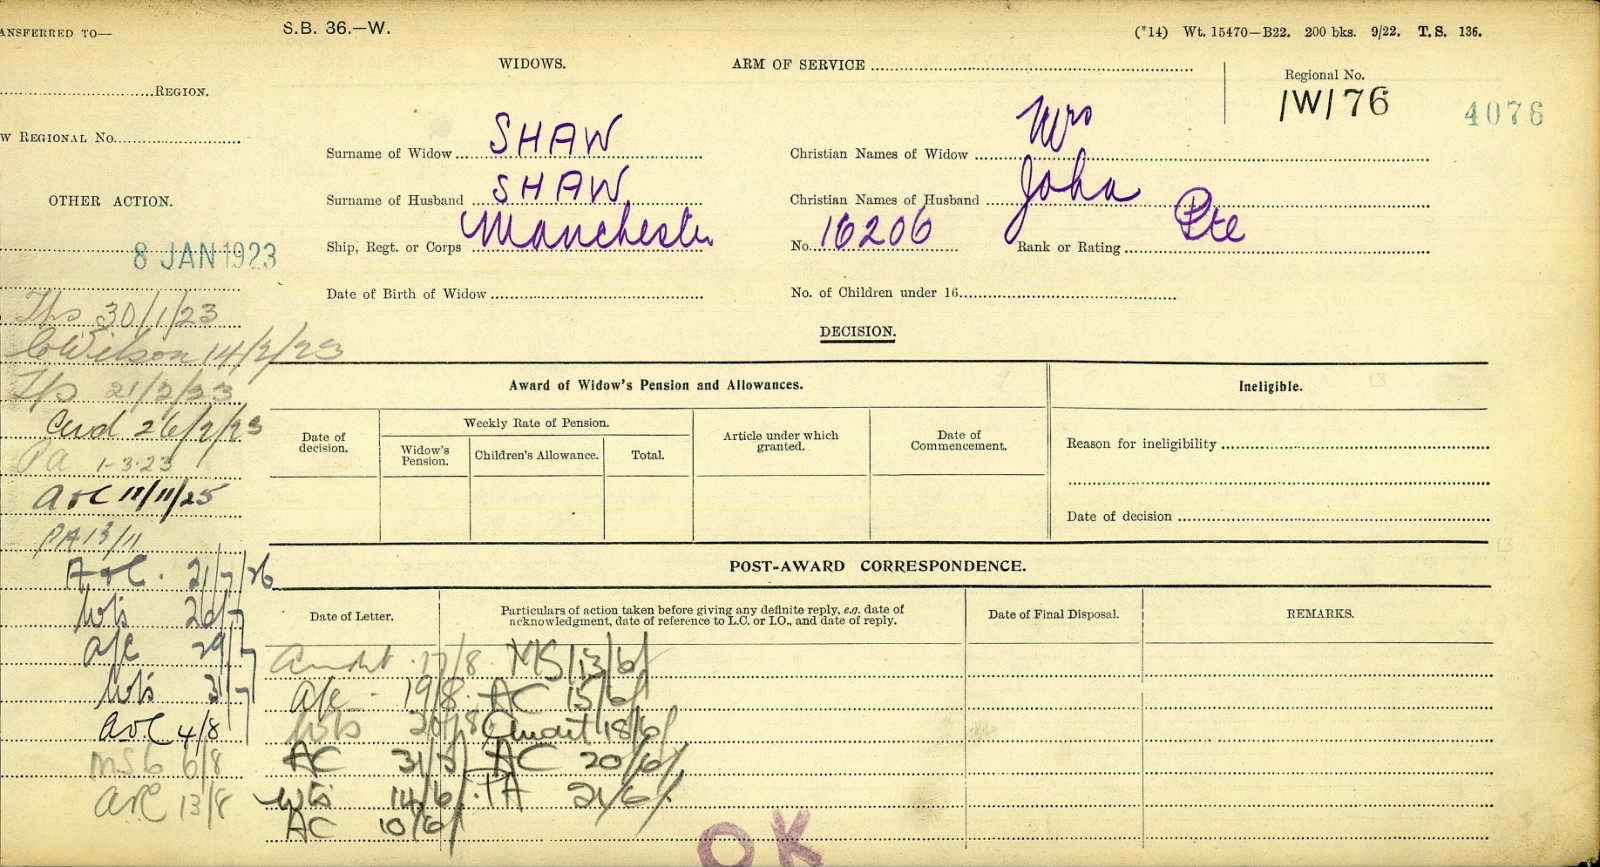 ANSFERRED TO—
S.B. 36.—W.
(*14) Wt. 15470—B22. 200 bks. 9/22. T.S. 136.
WIDOWS.
ARM OF SERVICE
REGION.
Regional No.
/W/76
4076
W REGIONAL No.
Surname of Widow SHAW
Christian Names of Widow Mrs
OTHER ACTION.
Surname of Husband SHAW
Christian Names of Husband John
8 JAN 1923
Ship, Regt. or Corps Manchester
No. 16206
Rank or Rating Pte
Date of Birth of Widow
No. of Children under 16
30/1/23
DECISION.
CWilson 14/2/23
21/2/23
Award of Widow's Pension and Allowances.
Ineligible.
26/2/23
PA 1-3-23
Date of decision.
Weekly Rate of Pension.
Widow's Pension.
Children's Allowance.
Total.
Article under which granted.
Date of Commencement.
Reason for ineligibility
AOC 11/11/25
Date of decision
PA 13/11
POST-AWARD CORRESPONDENCE.
AOC. 21/7/26
Date of Letter.
Particulars of action taken before giving any definite reply, e.g. date of
acknowledgment, date of reference to L.C. or I.O., and date of reply.
Date of Final Disposal.
REMARKS.
26/7
29/7
31/7
AOC 4/8
MS6 6/8
13/8
17/8 MS 13/6/
19/8 AC 15/6/
20/8 18/6/
AC 31/5 AC 20/6/
14/6/ PA 21/6/
AC 10/6/
OK